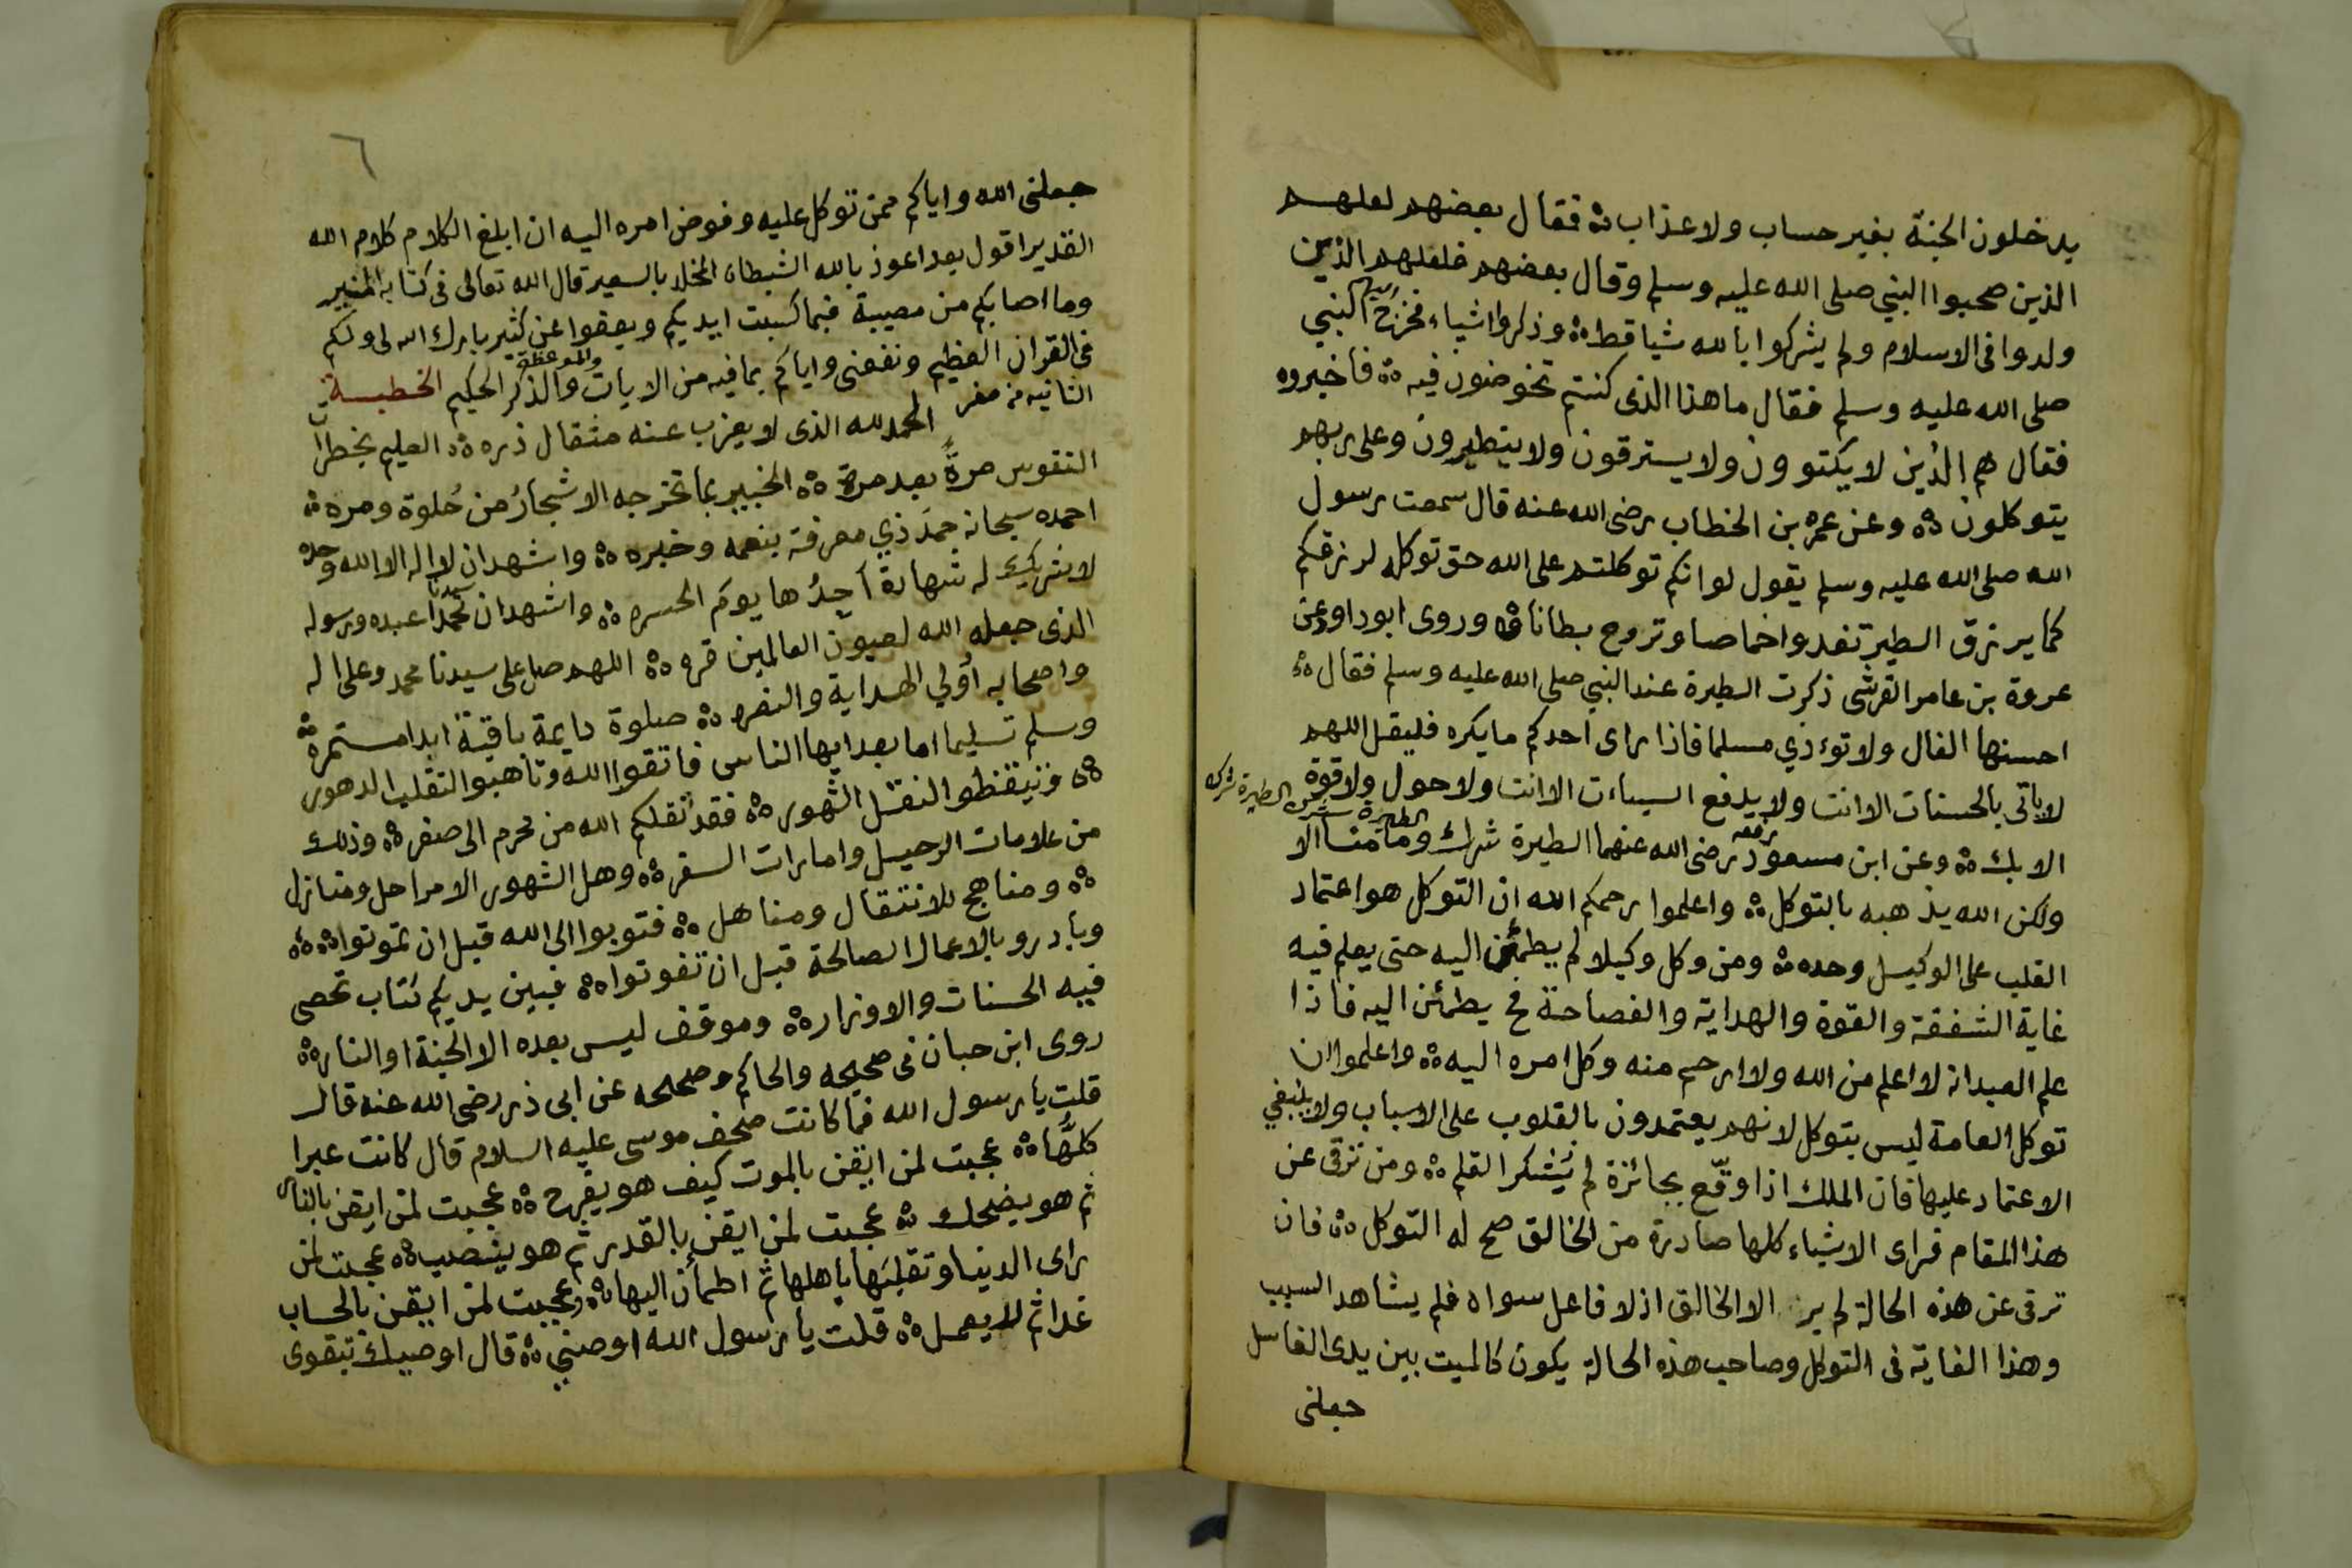 يدخلون الجنة بغير حساب ولا عذاب ۞ فقال بعضهم لعلهم
الذين صحبوا النبي صلى الله عليه وسلم وقال بعضهم فلعلهم الذين
ولدوا في الاسلام ولم يشركوا بالله شيا قط ۞ وذكروا اشياء فخرج اليهم النبي
صلى الله عليه وسلم فقال ما هذا الذى كنتم تخوضون فيه ۞ فاخبروه
فقال هم الذين لا يكتوون ولا يسترقون ولا يتطيرون وعلى ربهم
يتوكلون ۞ وعن عمر بن الخطاب رضى الله عنه قال سمعت رسول
الله صلى الله عليه وسلم يقول لو انكم توكلتم على الله حق توكله لرزقكم
كما يرزق الطير تغدوا خماصا وتروح بطانا ۞ وروى ابو داود عن
عروة بن عامر القرشى ذكرت الطيرة عند النبي صلى الله عليه وسلم فقال ۞
احسنها الفال ولا توءذي مسلما فاذا راى احدكم ما يكره فليقل اللهم
لا ياتى بالحسنات الا انت ولا يدفع السيءات الا انت ولا حول ولا قوة
الا بك ۞ وعن ابن مسعود يرفعه رضى الله عنهما الطيرة شرك الطيرة شرك الطيرة شرك وما منا الا
ولكن الله يذهبه بالتوكل ۞ واعلموا رحمكم الله ان التوكل هو اعتماد
القلب على الوكيل وحده ۞ ومن وكل وكيلا لم يطمئن اليه حتى يعلم فيه
غاية الشفقة والقوة والهداية والفصاحة فح يطمئن اليه فاذا
علم العبد انه لا اعلم من الله ولا ارحم منه وكل امره اليه ۞ واعلموا ان
توكل العامة ليس بتوكل لانهم يعتمدون بالقلوب على الاسباب ولا ينبغي
الاعتماد عليها فان الملك اذا وقّع بجائزة لم يُشكر القلم ۞ ومن ترقى عن
هذا المقام فراى الاشياء كلها صادرة من الخالق صح له التوكل ۞ فان
ترقى عن هذه الحالة لم ير الا الخالق اذ لا فاعل سواه فلم يشاهد السبب
وهذا الغاية في التوكل وصاحب هذه الحالة يكون كالميت بين يدى الغاسل
جعلنى
٦
جعلنى الله واياكم ممن توكل عليه وفوض امره اليه ان ابلغ الكلام كلام الله
القدير اقول بعد اعوذ بالله الشيطان المخلد بالسعير قال الله تعالى فى كتابه المنير
وما اصابكم من مصيبة فبما كسبت ايديكم ويعفوا عن كثير بارك الله لى ولكم
فى القران العظيم ونفعنى واياكم بما فيه من الايات والموعظة والذكر الحكيم الخطبة
الثانيه من صفر الحمد لله الذى لا يعزب عنه مثقال ذره ۞ العليم بخطرات
النفوس مرةً بعد مرة ۞ الخبير بما تخرجه الاشجارُ من حُلوة ومره ۞
احمده سبحانه حمدَ ذي معرفة بنعمه وخبره ۞ واشهد ان لا اله الا الله وحده
لا شريك له شهادة أجدُها يوم الحسره ۞ واشهد ان سيدنا محمدا عبده ورسوله
الذى جعله الله لعيون العالمين قره ۞ اللهم صل على سيدنا محمد وعلى اله
واصحابه أولي الهداية والنصره ۞ صلوة دايمة باقية ابدا مستمرة ۞
وسلم تسليما اما بعد ايها الناس فاتقوا الله وتاهبوا التقلب الدهور
۞ وتيقظوا لنقل الشهور ۞ فقد نقلكم الله من محرم الى صفر ۞ وذلك
من علامات الرحيل وامارات السفر ۞ وهل الشهور الا مراحل ومنازل
۞ ومناهج للانتقال ومناهل ۞ فتوبوا الى الله قبل ان تموتوا ۞
وبادرو بالاعمال الصالحة قبل ان تفوتوا ۞ فبين يديكم كتاب تحصى
فيه الحسنات والاوزار ۞ وموقف ليس بعده الا الجنة او النار ۞
روى ابن حبان فى صحيحه والحاكم وصححه عن ابى ذر رضى الله عنه قال
قلت يا رسول الله فما كانت صحف موسى عليه السلام قال كانت عبرا
كلها ۞ عجبت لمن ايقن بالموت كيف هو يفرح ۞ عجبت لمن ايقن بالنار
ثم هو يضحك ۞ عجبت لمن ايقن بالقدر ثم هو ينصب ۞ عجبت لمن
راى الدنيا وتقلبها باهلها ثم اطمأن اليها ۞ وعجبت لمن ايقن بالحساب
غدا ثم لا يعمل ۞ قلت يا رسول الله اوصني ۞ قال اوصيك بتقوى